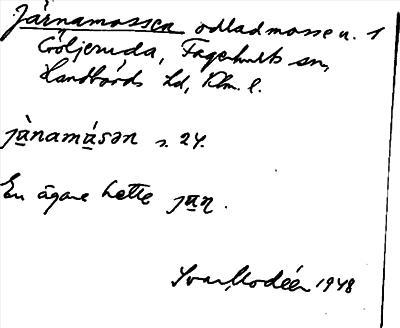 Järnamossen odlad mosse n. 1
Göljeruda, Fagerhults sn,
Handbörds hd, Klm. l.
jànamásən s. 24.
En ägare hette jan.
Ivar Modéer 1948